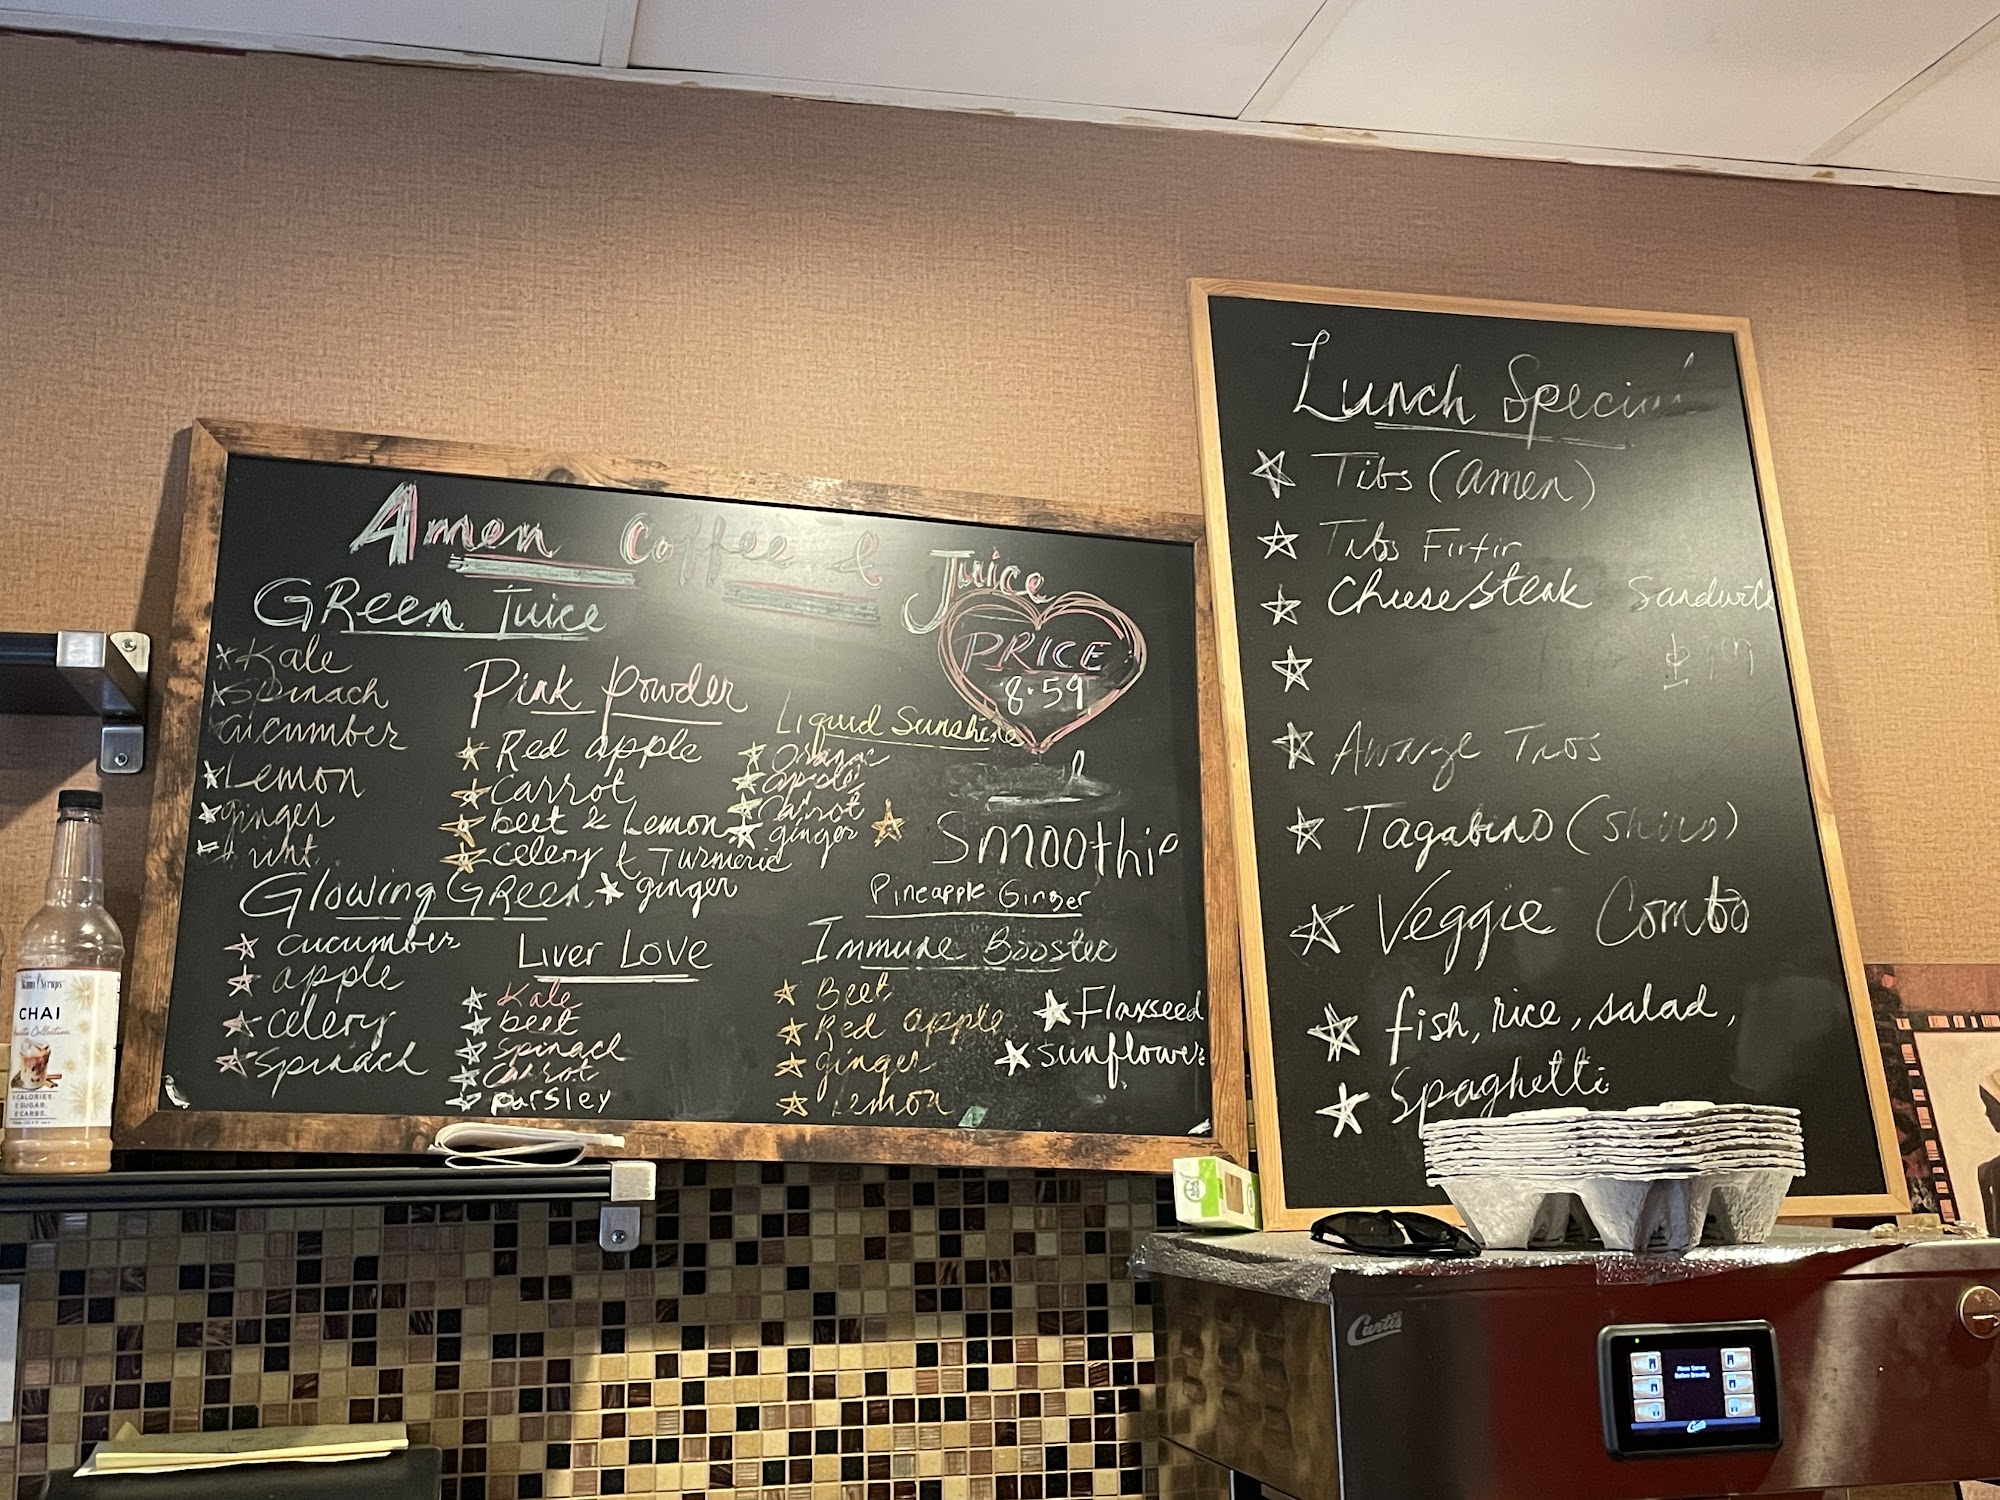 Amen Coffee & Juice
GReen Juice
Kale
Spinach
cucumber
Lemon
ginger
Pink Powder
Red apple
Carrot
beet & Lemon
celery & Turmeric
ginger
Liquid Sunshine
Orange
apple
Carrot
ginger
PRICE
8.59
Smoothie
Pineapple Ginger
Glowing GReen
cucumber
apple
celery
Spinach
Liver Love
Kale
beet
Spinach
Carrot
parsley
Immune Booster
Beet
Red apple
ginger
Lemon
Flaxseed
sunflower
Lunch Special
Tibs (amen)
Tibs Firfir
Cheesesteak Sandwich
Awaze Tibs
Tagabino (Shiro)
Veggie Combo
fish, rice, salad,
Spaghetti
CHAI
0 CALORIES.
0 SUGAR.
0 CARBS.
Curtis